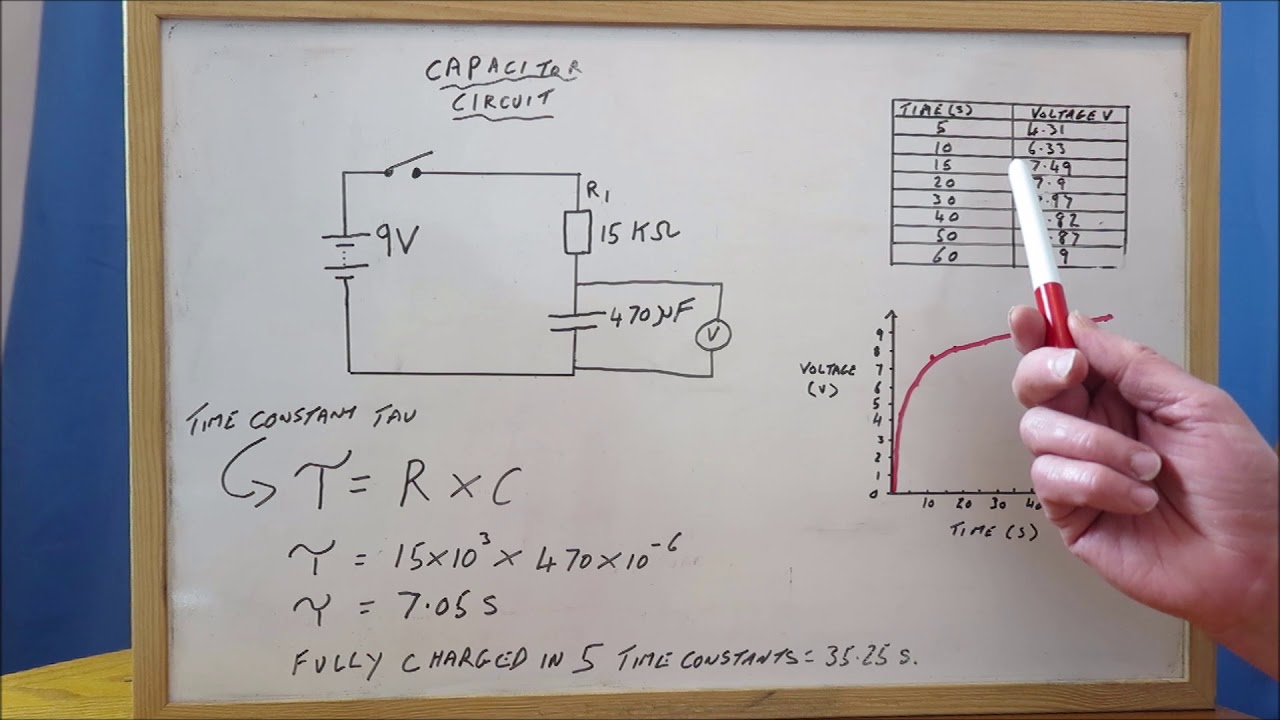 CAPACITOR
CIRCUIT
R1
15 KΩ
9V
470 µF
V
TIME (S) VOLTAGE V
5 4.31
10 6.33
15 7.49
20 7.9
30 .97
40 .82
50 .87
60 9
VOLTAGE
(V)
9
8
7
6
5
4
3
2
1
0
10 20 30 40
TIME (S)
TIME CONSTANT TAU
τ = R × C
τ = 15×10³ × 470×10⁻⁶
τ = 7.05 S
FULLY CHARGED IN 5 TIME CONSTANTS = 35.25 S.